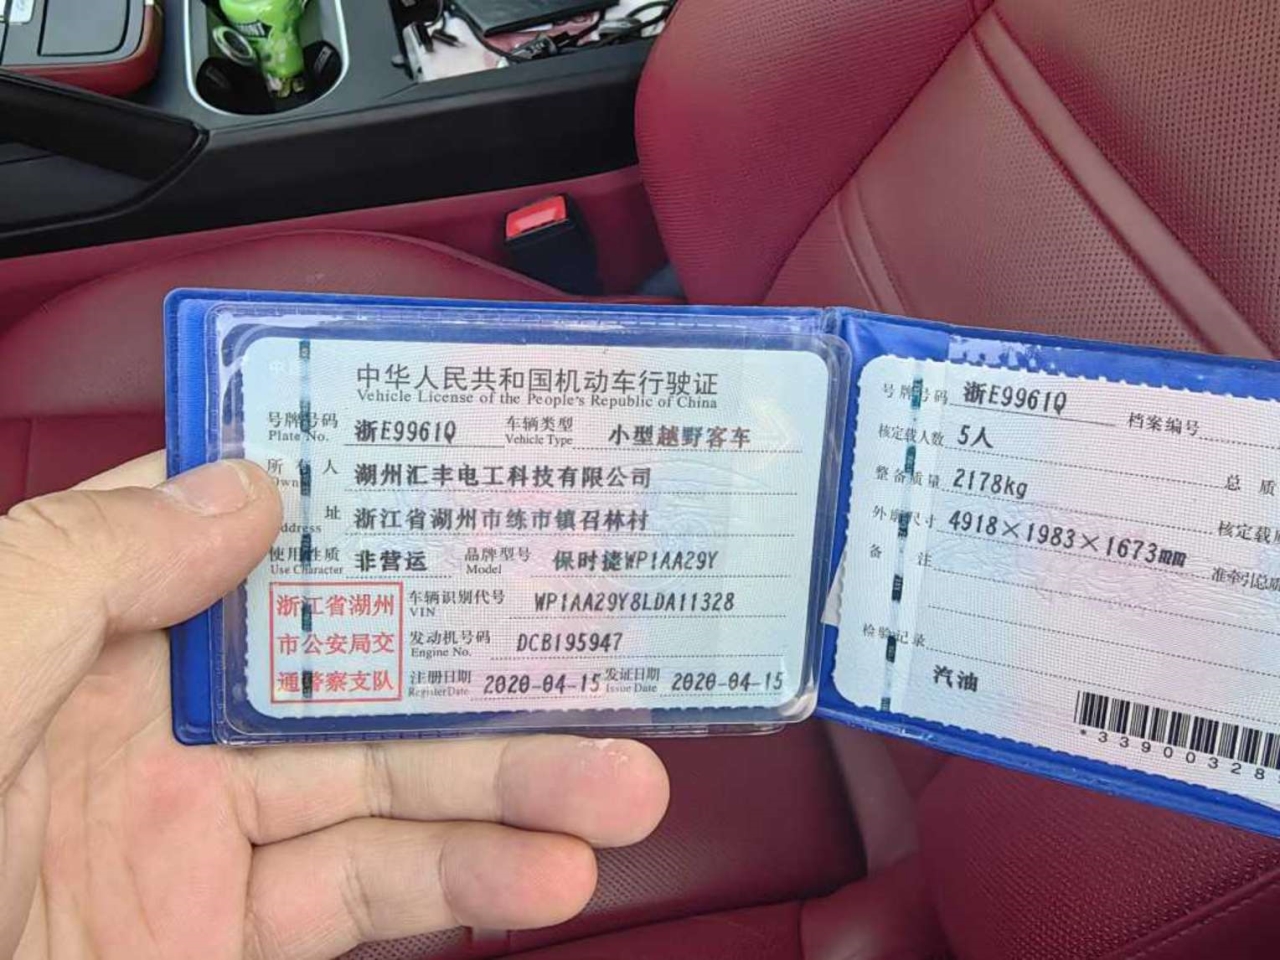 中华人民共和国机动车行驶证
Vehicle License of the People's Republic of China
号牌号码 浙E9961Q 车辆类型 小型越野客车
Plate No. Vehicle Type
所 人 湖州汇丰电工科技有限公司
址 浙江省湖州市练市镇召林村
使用性质 非营运 品牌型号 保时捷WP1AA29Y
Use Character Model
浙江省湖州
市公安局交
通警察支队
车辆识别代号 WP1AA29Y8LDA11328
VIN
发动机号码 DCB195947
Engine No.
注册日期 2020-04-15 发证日期 2020-04-15
Register Date Issue Date
号牌号码 浙E9961Q 档案编号
核定载人数 5人 总 质
整备质量 2178kg 核定载
外廓尺寸 4918×1983×1673mm 准牵引总
备 注
检验记录
汽油
*33900328